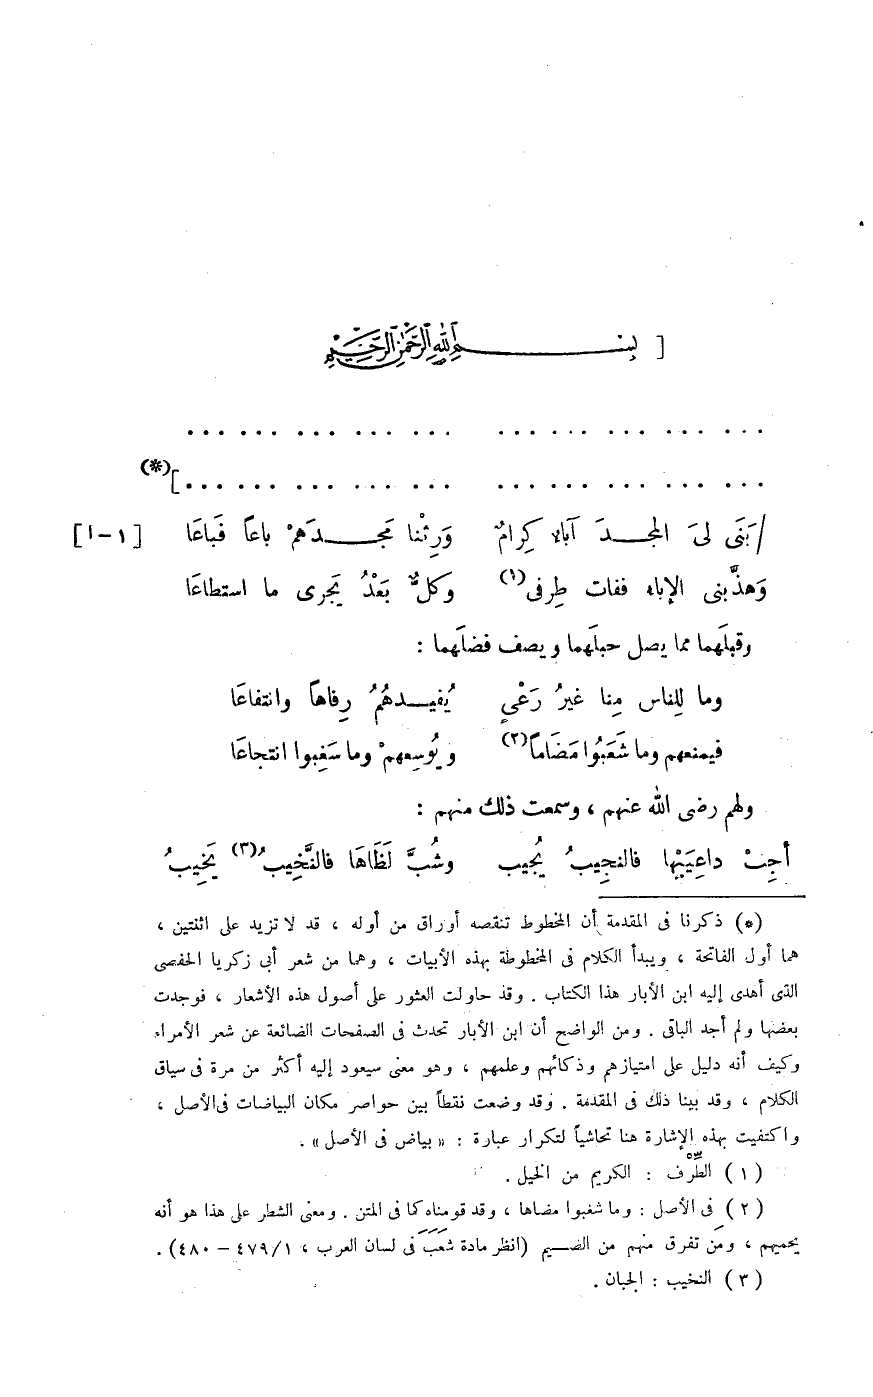 [ بسم الله الرحمن الرحيم
... ... ... ... ... ... ... ... ... ...
... ... ... ... ... ... ... ... ... ...](*)
/بَنَى لىَ المجـدَ آباءٌ كِرامٌ وَرِثْنا مَجـدَهمْ باعاً فَبَاعَا [١-ا]
وَهذَّبنى الإباء ففات طِرفى(١) وَكلٌّ بَعْدُ يَجرى ما استطاعَا
وقبلَهما مما يصل حبلَهما ويصف فضلَهما :
وما لِلناس مِنا غيرُ رَعْىٍ يُفيـدهُمُ رِفاهاً وانتفاعَا
فيمنعهم وما شَعَبُوا مَضَاماً(٢) ويُوسِعهمْ وما سَغِبوا انتجاعَا
ولهم رضى الله عنهم ، وسمعت ذلك منهم :
أجِبْ داعِيَيْها فالنجيبُ يُجيب وشُبَّ لَظَاهَا فالنَّخِيبُ(٣) يَخِيبُ
(*) ذكرنا فى المقدمة أن المخطوط تنقصه أوراق من أوله ، قد لا تزيد على اثنتين ،
هما أول الفاتحة ، ويبدأ الكلام فى المخطوطة بهذه الأبيات ، وهما من شعر أبى زكريا الحفصى
الذى أهدى إليه ابن الأبار هذا الكتاب . وقد حاولت العثور على أصول هذه الأشعار ، فوجدت
بعضها ولم أجد الباقى . ومن الواضح أن ابن الأبار تحدث فى الصفحات الضائعة عن شعر الأمراء
وكيف أنه دليل على امتيازهم وذكائهم وعلمهم ، وهو معنى سيعود إليه أكثر من مرة فى سياق
الكلام ، وقد بينا ذلك فى المقدمة . وقد وضعت نقطاً بين حواصر مكان البياضات فى الأصل ،
واكتفيت بهذه الإشارة هنا تحاشياً لتكرار عبارة : « بياض فى الأصل » .
(١) الطِّرْف : الكريم من الخيل .
(٢) فى الأصل : وما شغبوا مضاها ، وقد قومناه كما فى المتن . ومعنى الشطر على هذا هو أنه
يحميهم ، ومَن تفرق منهم من الضـيم (انظر مادة شَعَبَ فى لسان العرب ، ٤٧٩/١ – ٤٨٠) .
(٣) النخيب : الجبان .